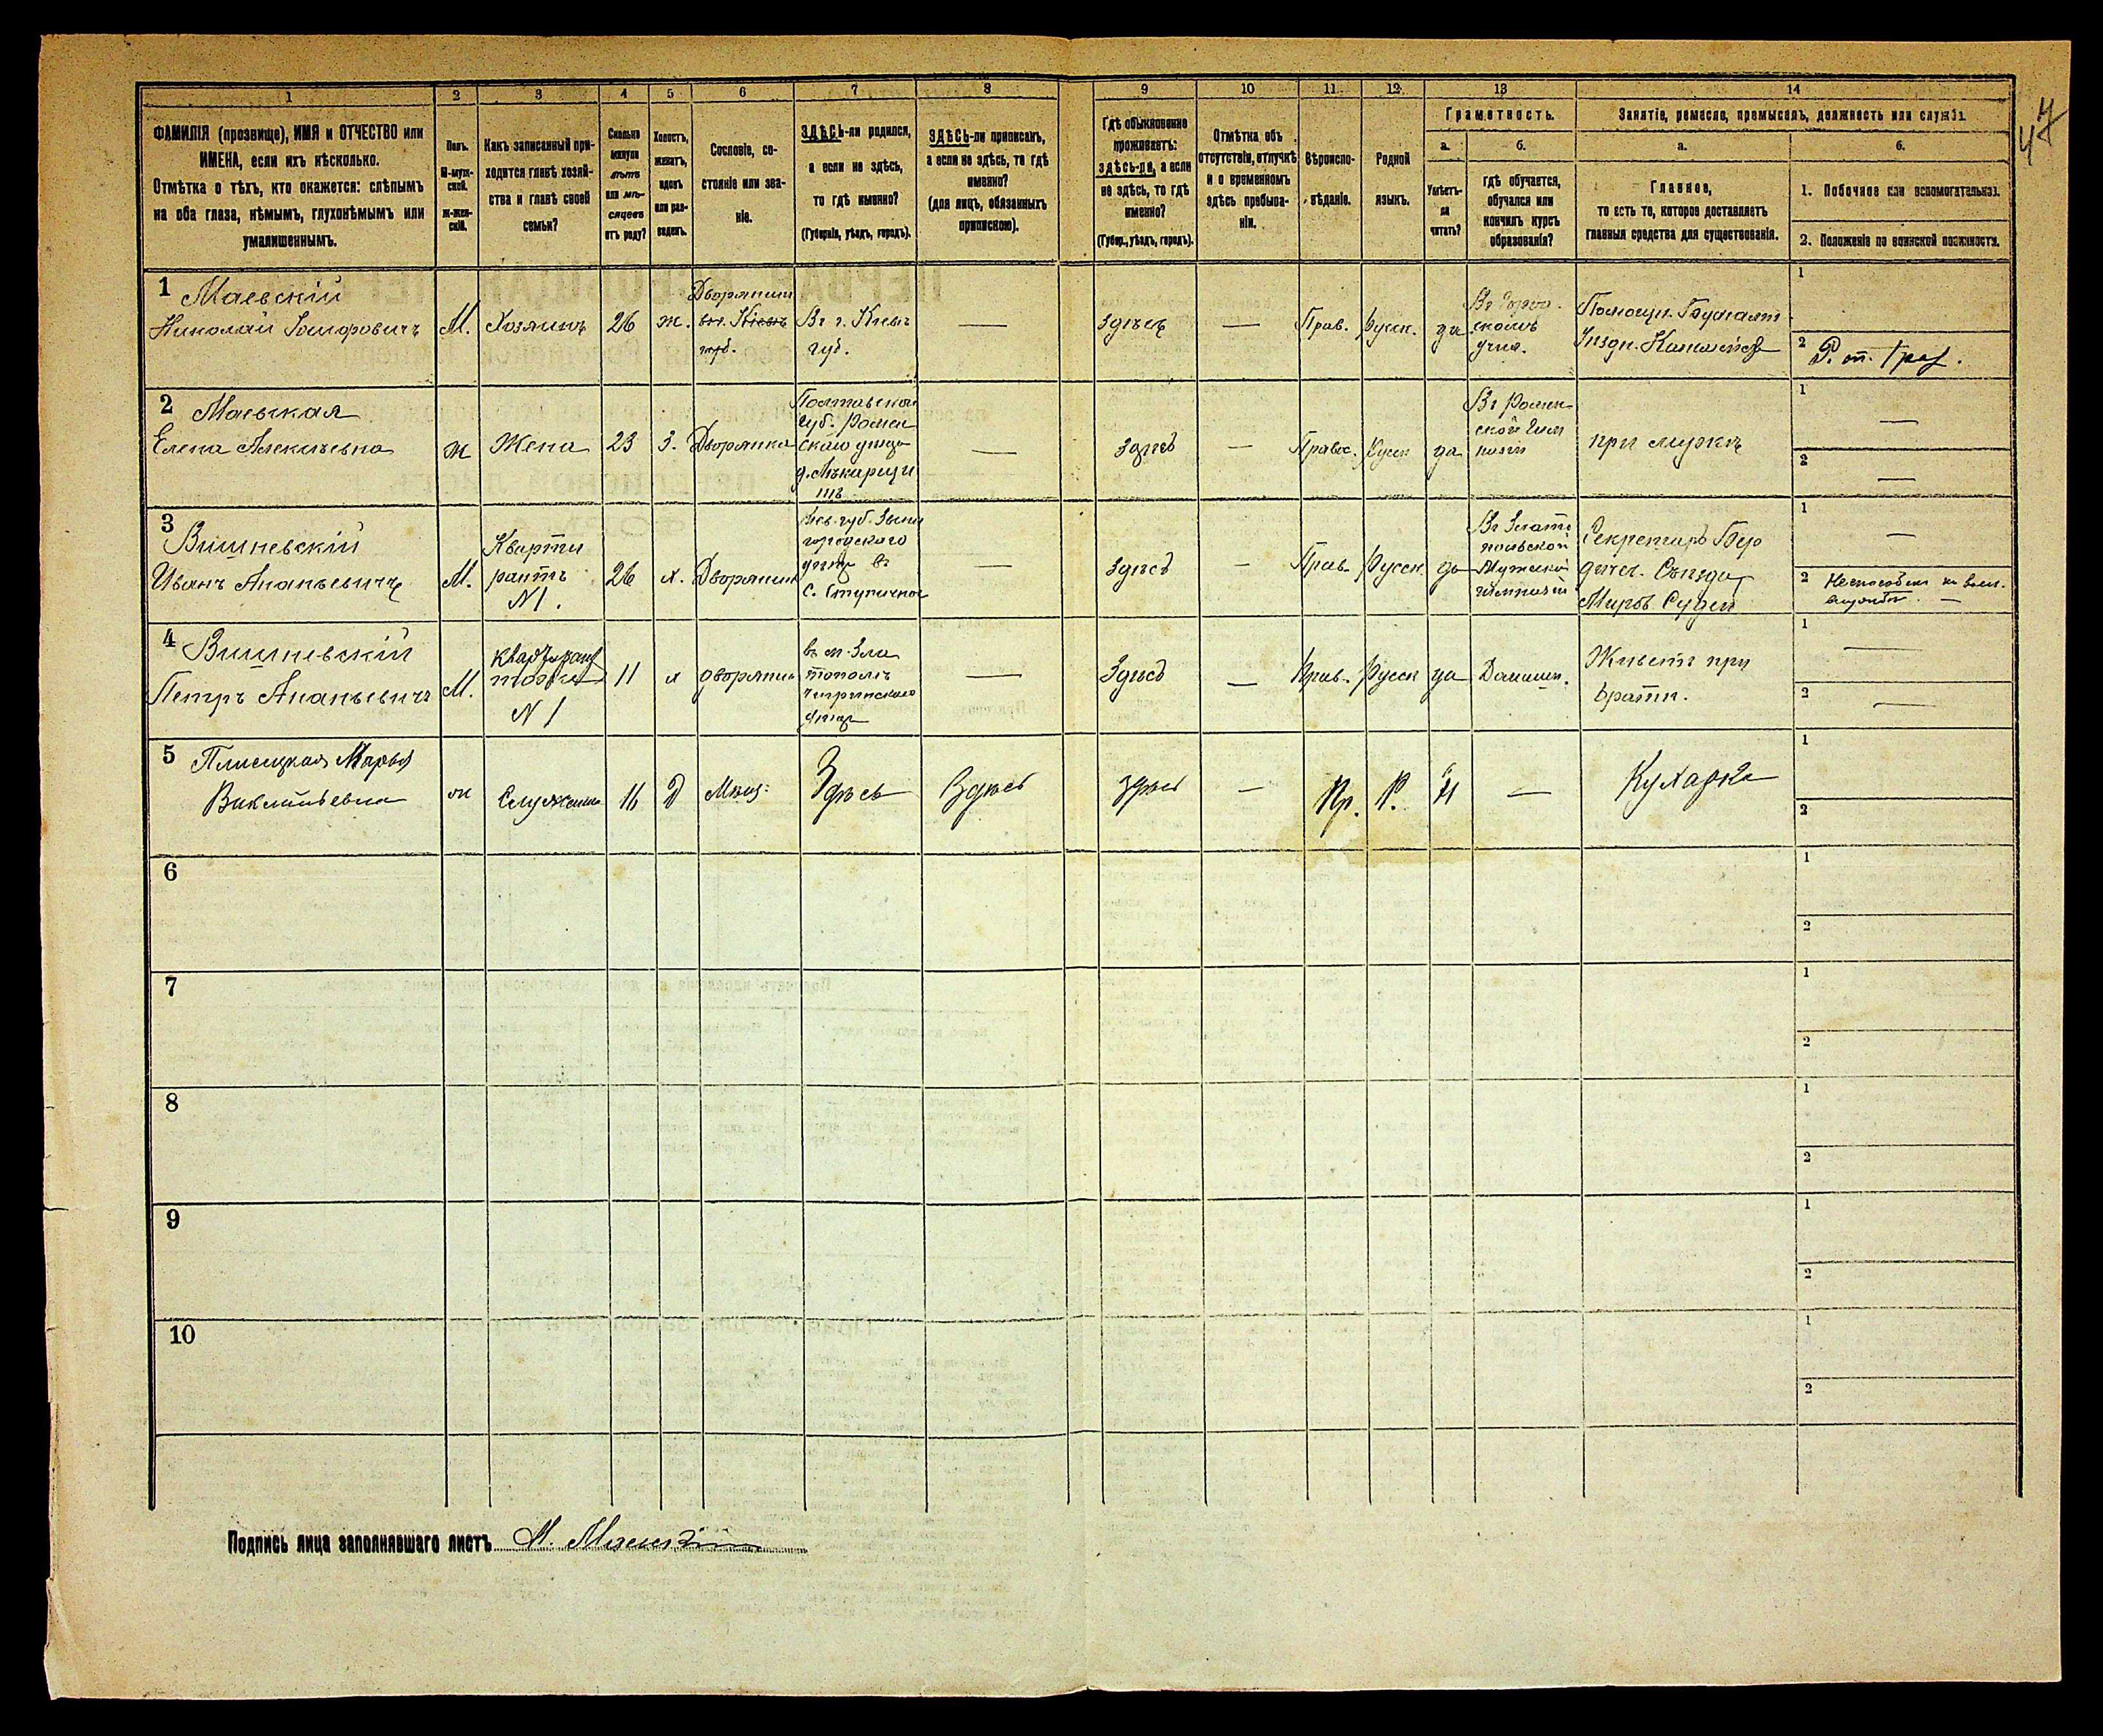 47
1 2 3 4 5 6 7 8 9 10 11 12 13 14
ФАМИЛІЯ (прозвище), ИМЯ и ОТЧЕСТВО или
ИМЕНА, если ихъ нѣсколько.
Отмѣтка о тѣхъ, кто окажется: слѣпымъ
на оба глаза, нѣмымъ, глухонѣмымъ или
умалишеннымъ.
Полъ.
М-муж-
ской.
Ж-жен-
скій.
Какъ записанный при-
ходится главѣ хозяй-
ства и главѣ своей
семьи?
Сколько
минуло
лѣтъ
или мѣ-
сяцевъ
отъ роду?
Холостъ,
женатъ,
вдовъ
или раз-
веденъ.
Сословіе, со-
стояніе или зва-
ніе.
ЗДѢСЬ-ли родился,
а если не здѣсь,
то гдѣ именно?
(Губернія, уѣздъ, городъ).
ЗДѢСЬ-ли приписанъ,
а если не здѣсь, то гдѣ
именно?
(для лицъ, обязанныхъ
припискою).
Гдѣ обыкновенно
проживаетъ:
здѣсь-ли, а если
не здѣсь, то гдѣ
именно?
(Губер., уѣздъ, городъ).
Отмѣтка объ
отсутствіи, отлучкѣ
и о временномъ
здѣсь пребыва-
ніи.
Вѣроиспо-
вѣданіе.
Родной
языкъ.
Грамотность.
а.
Умѣетъ-
ли
читать?
б.
гдѣ обучается,
обучался или
кончилъ курсъ
образованія?
Занятіе, ремесло, промыселъ, должность или служба.
а.
Главное,
то есть то, которое доставляетъ
главныя средства для существованія.
б.
1. Побочное или вспомогательное.
2. Положеніе по воинской повинности.
1 Маевскій
Николай
М.
Хозяинъ
26
ж.
Дворянинъ
вт. Кіевъ
губ.
Вг г. Кіевъ
губ.
—
Здѣсь
—
Прав.
Русск.
да
учил.
Помощн. Бухгалт
1
2
2 Маевская
Елена Алексѣевна
ж
Жена
23
З.
Дворянка
Полтавской
губ. Ромен
скаго уѣзда
—
Здѣсь
—
Правос.
Русск
да
Въ Ромен
ской Гим
назіи
при мужѣ
1 —
2 —
3 Вишневскій
Иванъ Ананьевичъ
М.
Кварти
рантъ
N 1.
26
х.
Дворянинъ
Кіев. губ. Звени
городского
уѣзда въ
—
Здѣсь
—
Прав.
Русск
да
Въ Злато
польской
Мужской
гимназіи
Секретарь Бер
дичев. Съѣзда
Миров. Судей
1 —
2
4 Вишневскій
Петръ Ананьевичъ
М.
N 1
11
х
дворянин
въ м. Зла
тополѣ
Чигиринскаго
уѣзда
—
Здѣсь
—
Прав.
Русск
да
Домашн.
Живетъ при
братѣ.
1 —
2 —
5 Плисецкая Марья
ж
Служанка
16
Д
Мѣщ.
Здѣсь
Здѣсь
здѣсь
—
Пр.
Р.
Н
—
Кухарка
1
2
6
1
2
7
1
2
8
1
2
9
1
2
10
1
2
Подпись лица заполнявшаго листъ